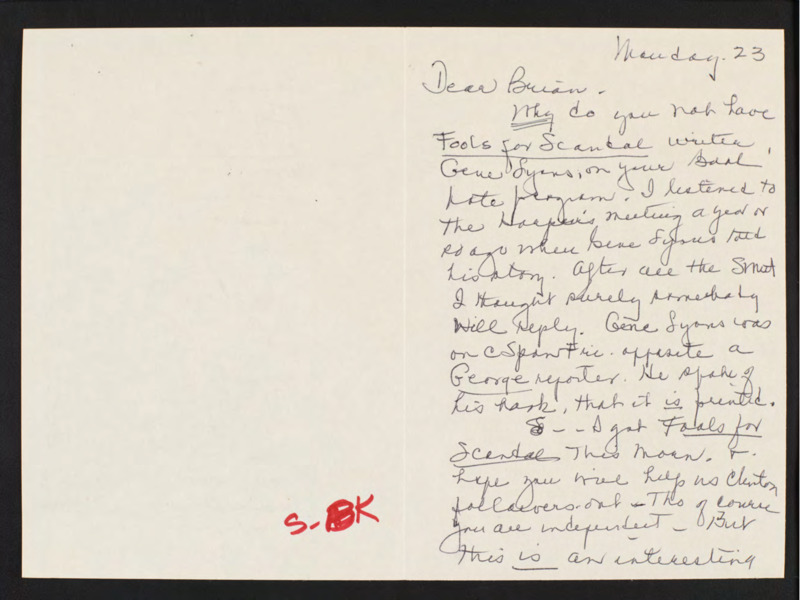 Monday. 23
Dear Brian.
Why do you not have
Fools for Scandal writer,
Gene Lyons, on your Book
Note program. I listened to
the Harper's meeting a year or
so ago when Gene Lyons told
his story. After all the Smut
I thought surely somebody
will reply. Gene Lyons was
on CSpan Fri. opposite a
George reporter. He spoke of
his book, that it is printed.
S-- I got Fools for
Scandal This Morn. &
hope you will help us Clinton
followers-out - Tho of course
you are independent - But
This is an interesting
S-BK